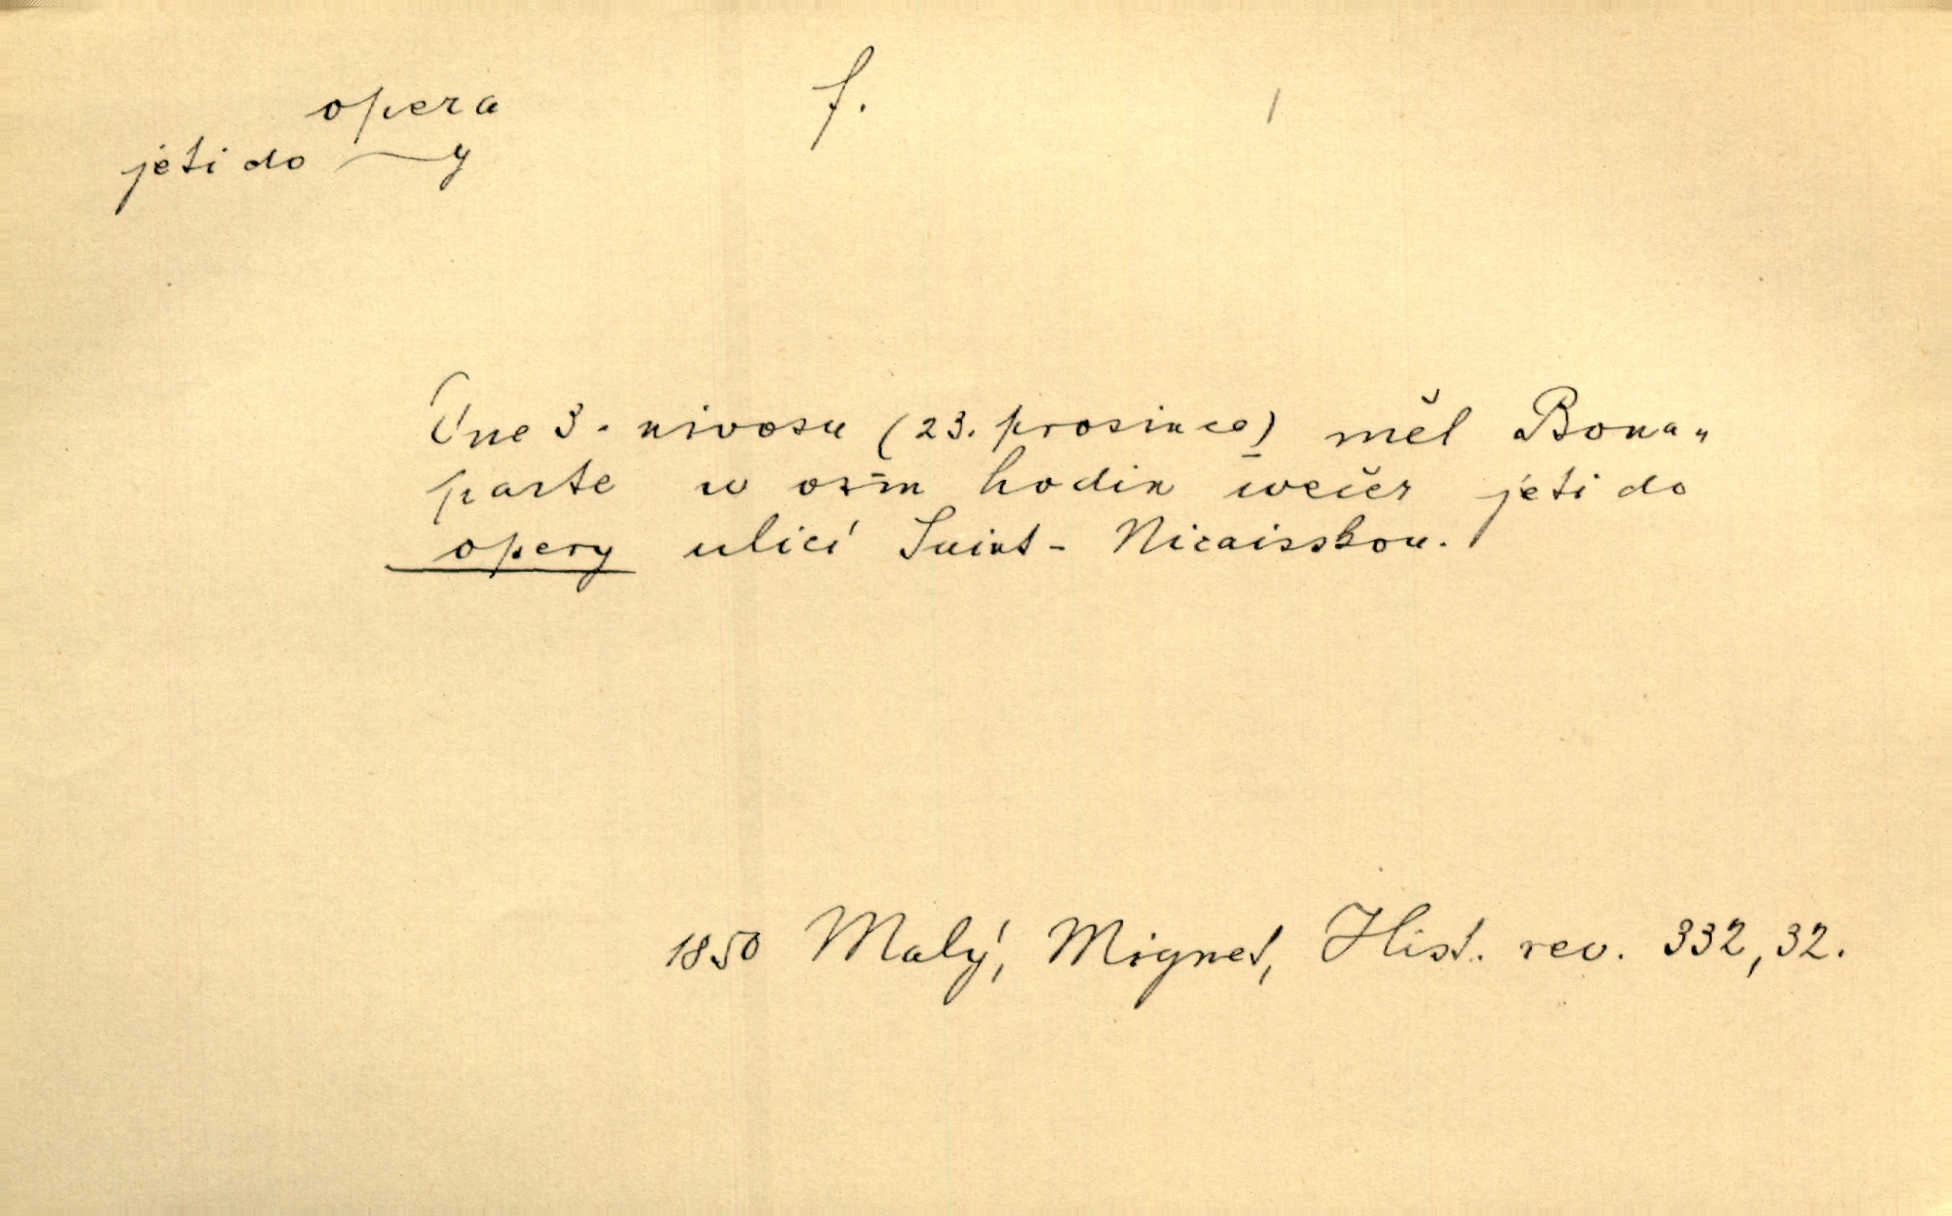 opera f. /
jeti do —y
Dne 3. nivosu (23. prosince) měl Bona„
parte w osm hodin wečer jeti do
opery ulicí Saint-Nicaisskou.
1850 Malý, Mignet, Hist. rev. 332, 32.